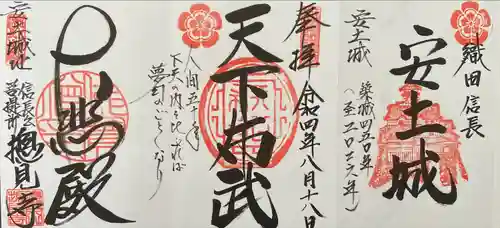 織田信長
安土城
安土城
築城四五〇年
(至二〇二六年)
奉拝
令和四年八月十八日
天下布武
人間五十年
下天の内を比ぶれば
夢幻のごとくなり
大悲殿
安土城址
信長公
菩提所
摠見寺